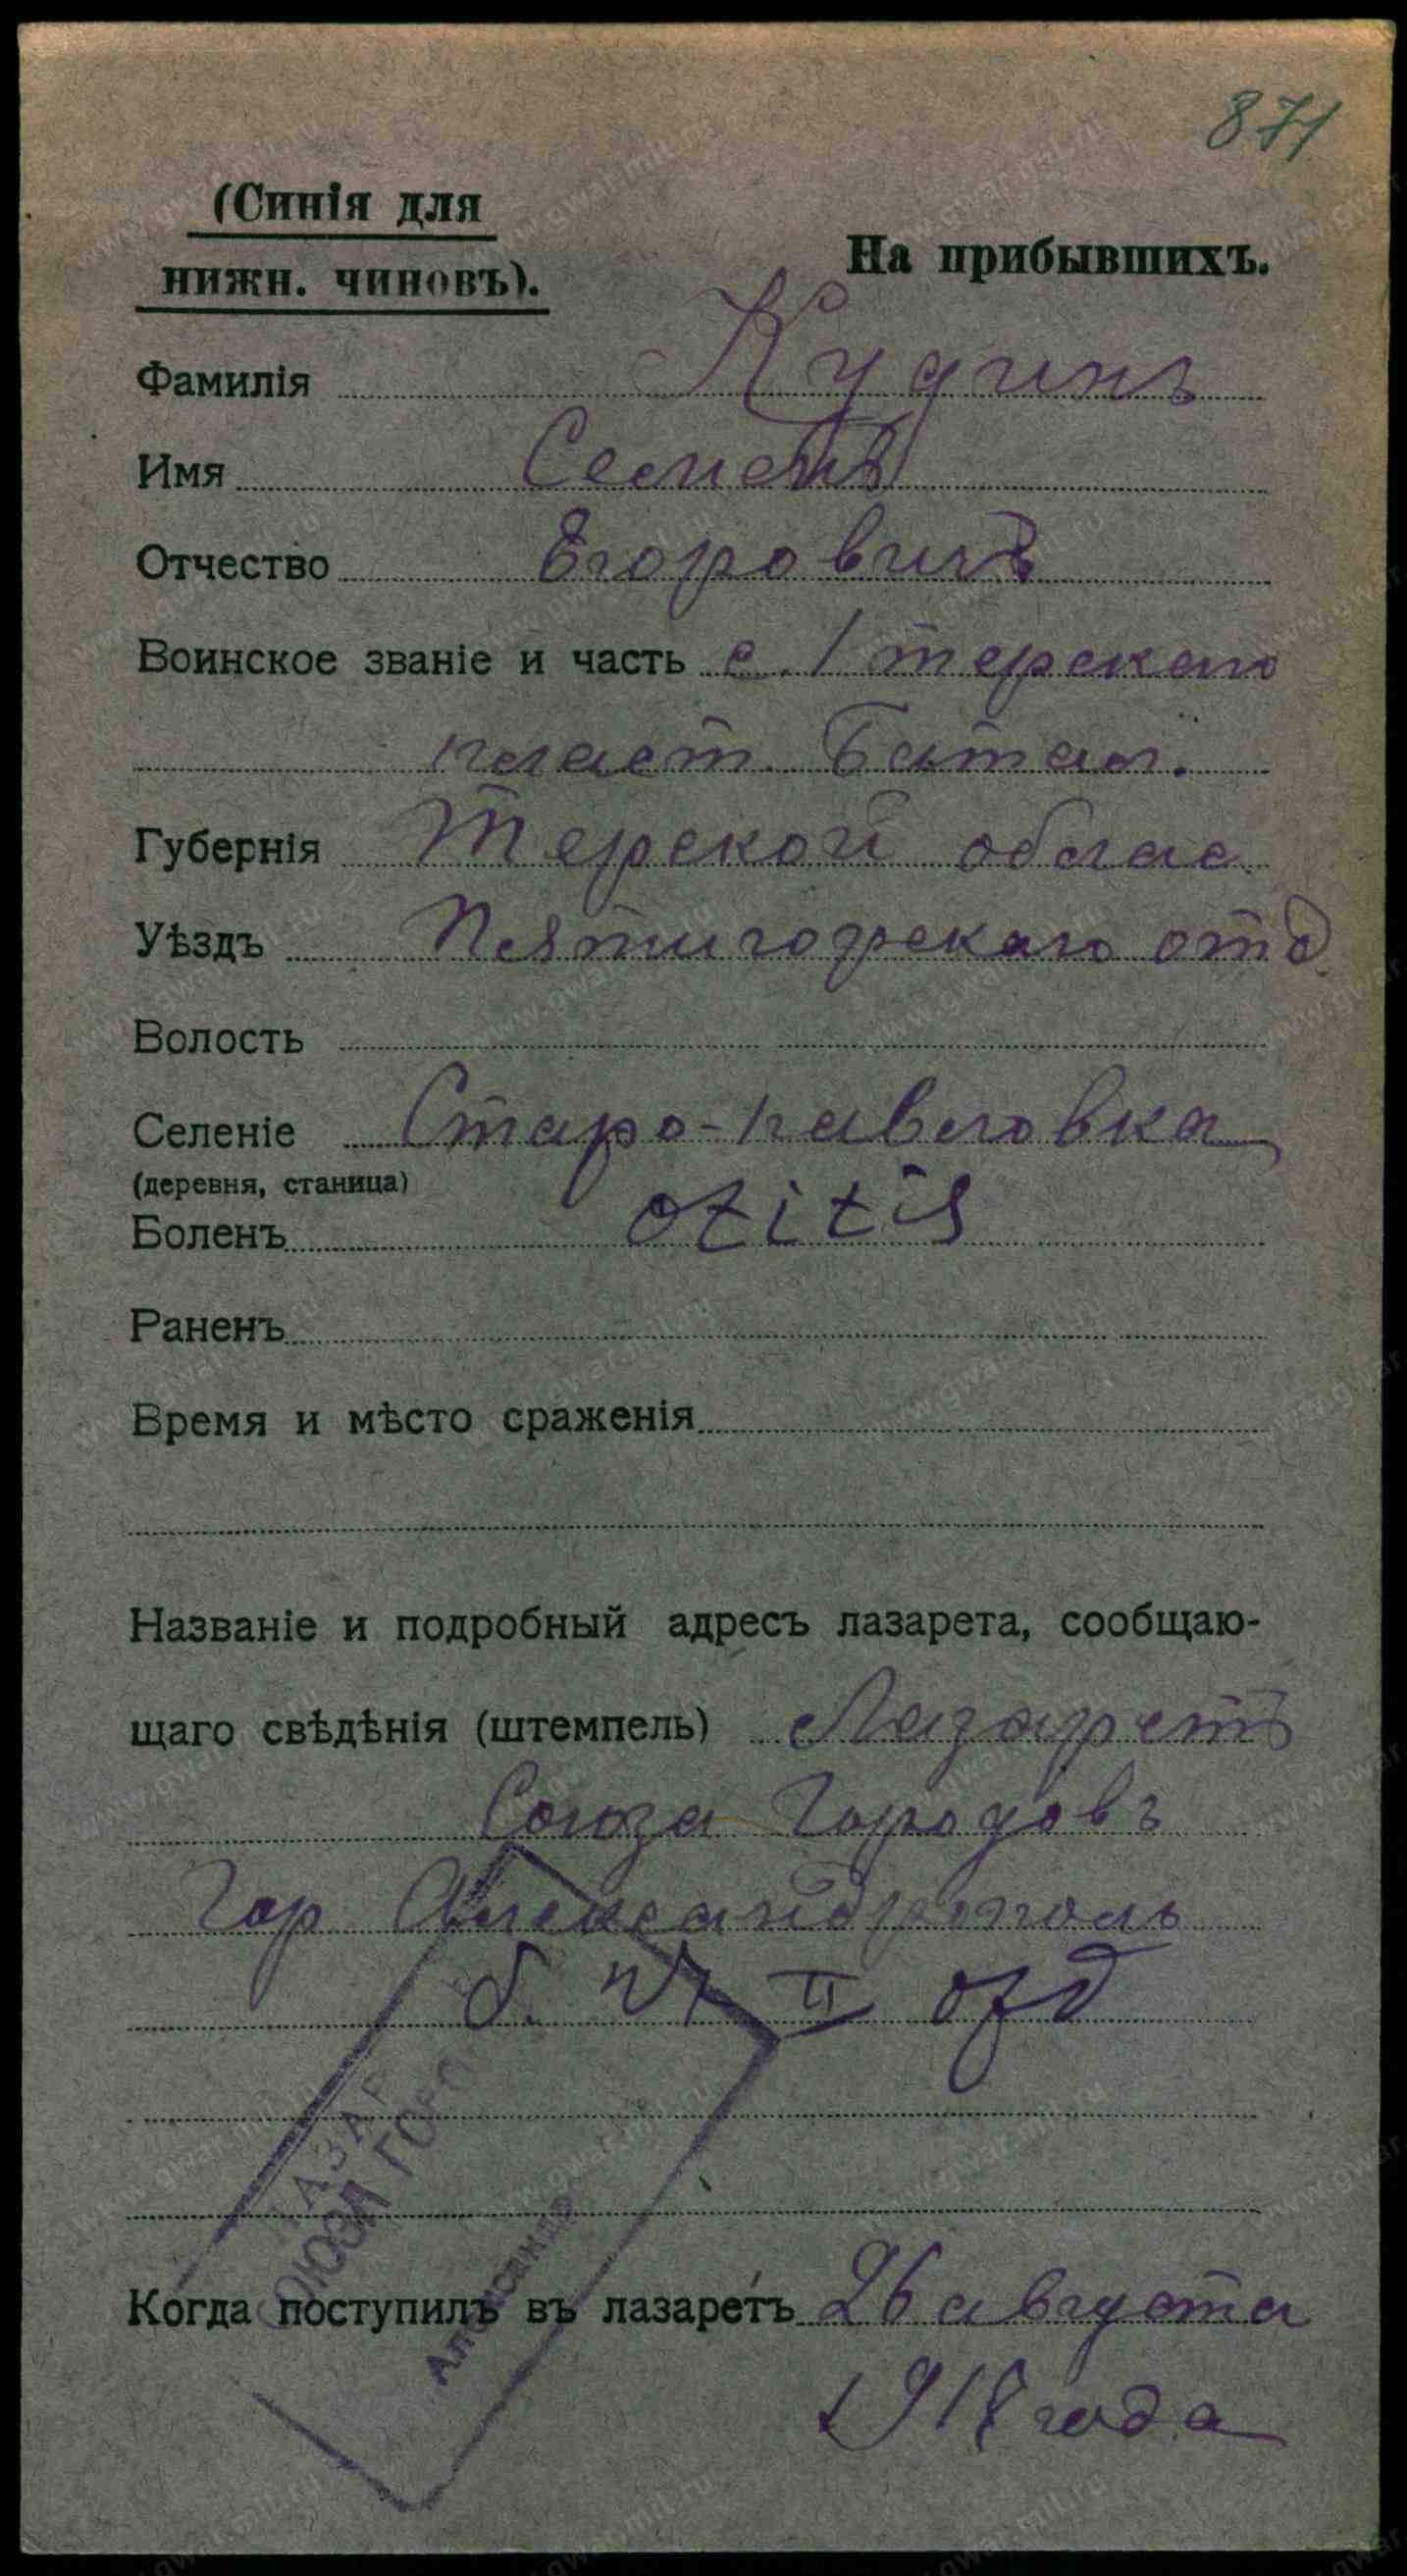 871
(Синія для
нижн. чиновъ).
На прибывшихъ.
Фамилія Кудинъ
Имя Семенъ
Отчество Егоровичъ
Воинское званіе и часть с. 1 терскаго
пласт. Батал.
Губернія Терской облас.
Уѣздъ Пятигорскаго отд.
Волость
Селеніе Старо-павловка
(деревня, станица)
Боленъ otitis
Раненъ
Время и мѣсто сраженія
Названіе и подробный адресъ лазарета, сообщаю-
щаго свѣдѣнія (штемпель) Лазаретъ
Союза Городовъ
Гор Александрополь
II отд
ЛАЗАР
СОЮЗА ГОРО
Александро
Когда поступилъ въ лазаретъ 26 августа
года